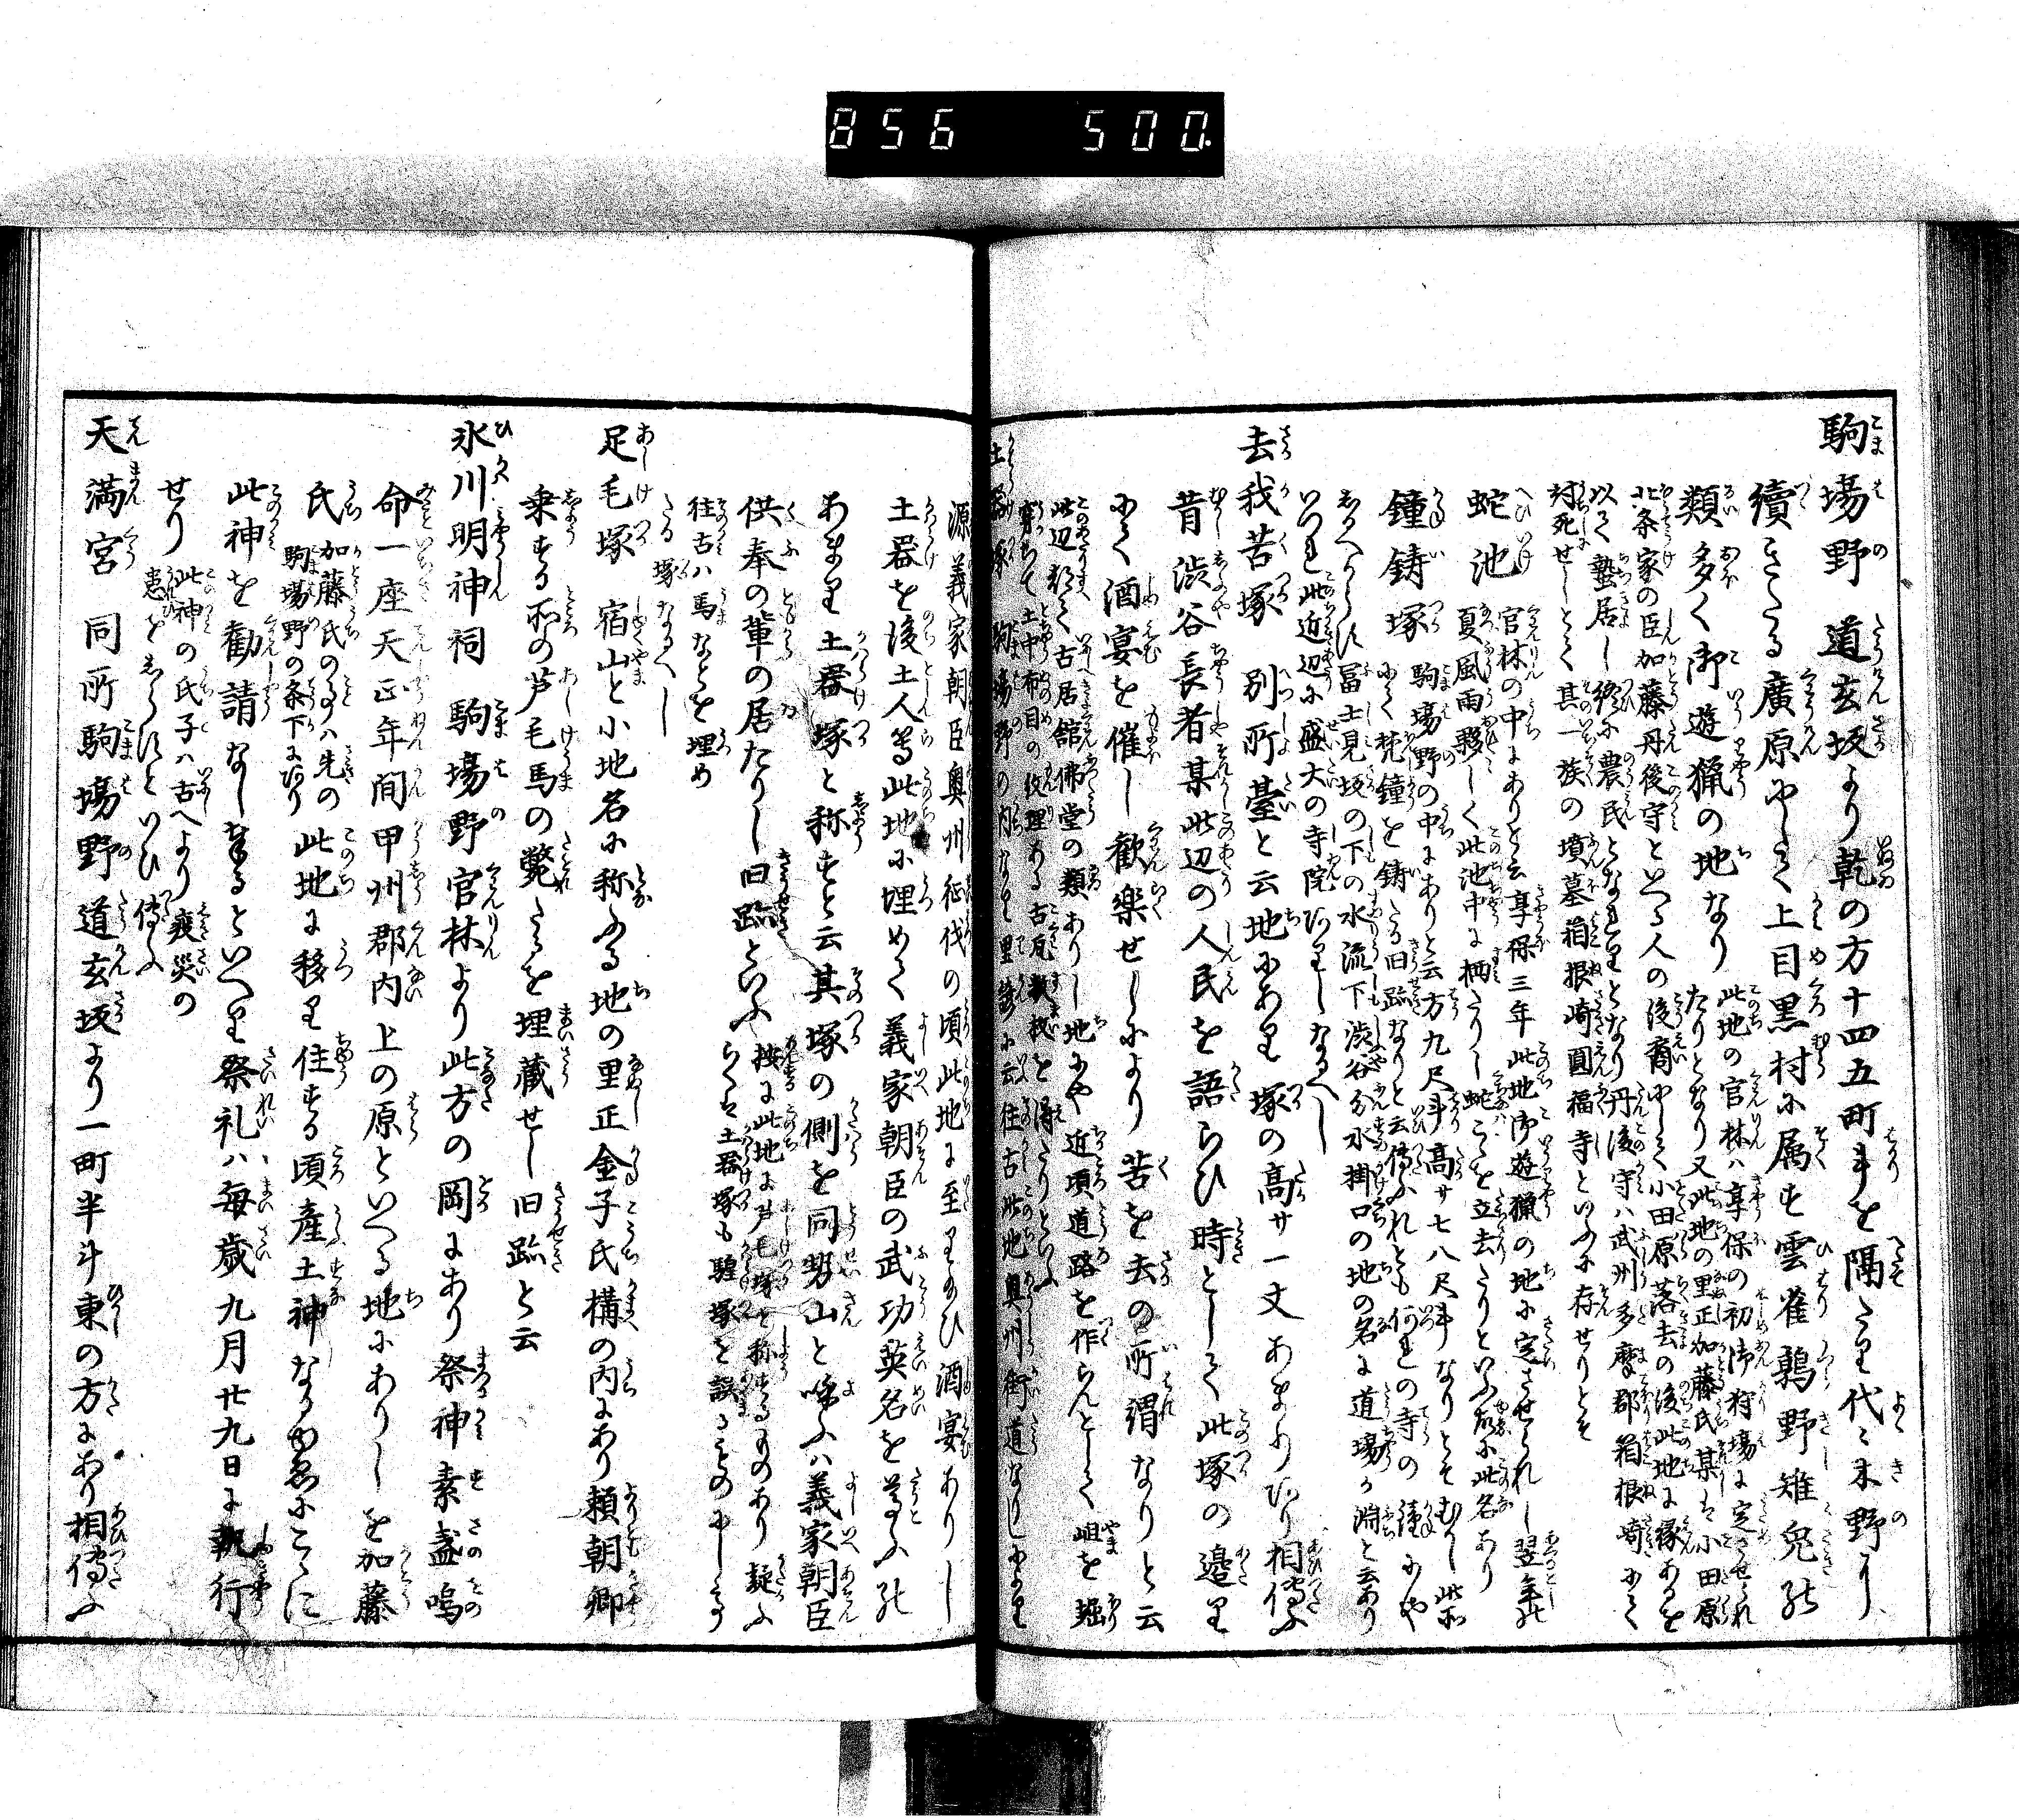 856 500.
駒場野 道玄坂より乾の方十四五町斗を隔たり代々木野に
續きたる廣原にして上目黒村に属す雲雀鶉野雉兎の
類多く御遊猟の地なり 此地の官林ハ享保の初御狩場に定させられ
たりとなり又此地の里正加藤氏某は小田原
北条家の臣加藤丹後守といへる人の後裔にして小田原落去の後此地に縁あるを
以て蟄居し終に農民となれりとなり丹後守ハ武州多摩郡箱根崎にて
討死せしとて其一族の墳墓箱根崎圓福寺といふに存せりとそ
蛇池 官林の中にありと云享保三年此地御遊猟の地に定させられし翌年の
夏風雨夥しく此池中に栖たりし蛇こゝを立去たりといふ故に此名あり
鐘鋳塚 駒場野の中にありと云方九尺斗高サ七八尺斗なりとそむかし此所
にて梵鐘を鋳たる旧跡なりと云傳ふれとも何れの寺の鐘にや
しるへからす冨士見坂の下の水流下渋谷分水掛口の地の名に道場か淵と云あり
いつれ此近辺に盛大の寺院ありしなるへし
去我苦塚 別所臺と云地にあり塚の高サ一丈あまりあり相傳ふ
昔渋谷長者某此辺の人民を語らひ時として此塚の邉り
にて酒宴を催し歓楽せしにより苦を去の所謂なりと云
此辺都て古居舘佛堂の類ありし地にや近頃道路を作らんとして岨を堀
穿ちて土中布目の紋理ある古瓦数枚を得たりといふ
土器塚 駒場野の内なり里諺に云往古此地奥州街道なりしにより
源義家朝臣奥州征伐の頃此地に至り給ひ酒宴ありし
土器を後土人等此地に埋めて義家朝臣の武功英名を尊ふ の
あまり土器塚と称すと云其塚の側を同勢山と喚ふハ義家朝臣
供奉の輩の居たりし旧跡といふ 按に此地に芦毛塚と称するものあり疑ふ
らくは土器塚も騂塚を誤るものにして
往古ハ馬なとを埋め
たる塚なるへし
足毛塚 宿山と小地名に称ふる地の里正金子氏構の内にあり頼朝卿
乗する所の芦毛馬の斃たるを埋蔵せし旧跡と云
氷川明神祠 駒場野官林より此方の岡にあり祭神素盞嗚
命一座天正年間甲州郡内上の原といへる地にありしを加藤
氏 加藤氏のことハ先の
駒場野の条下にあり 此地に移り住する頃産土神なるか故にこゝに
此神を勧請なし奉るといへり祭礼ハ毎歳九月廿九日に執行
せり 此神の氏子ハ古へより疫災の
患をしらすといひ傳ふ
天満宮 同所駒場野道玄坂より一町半斗東の方にあり相傳ふ